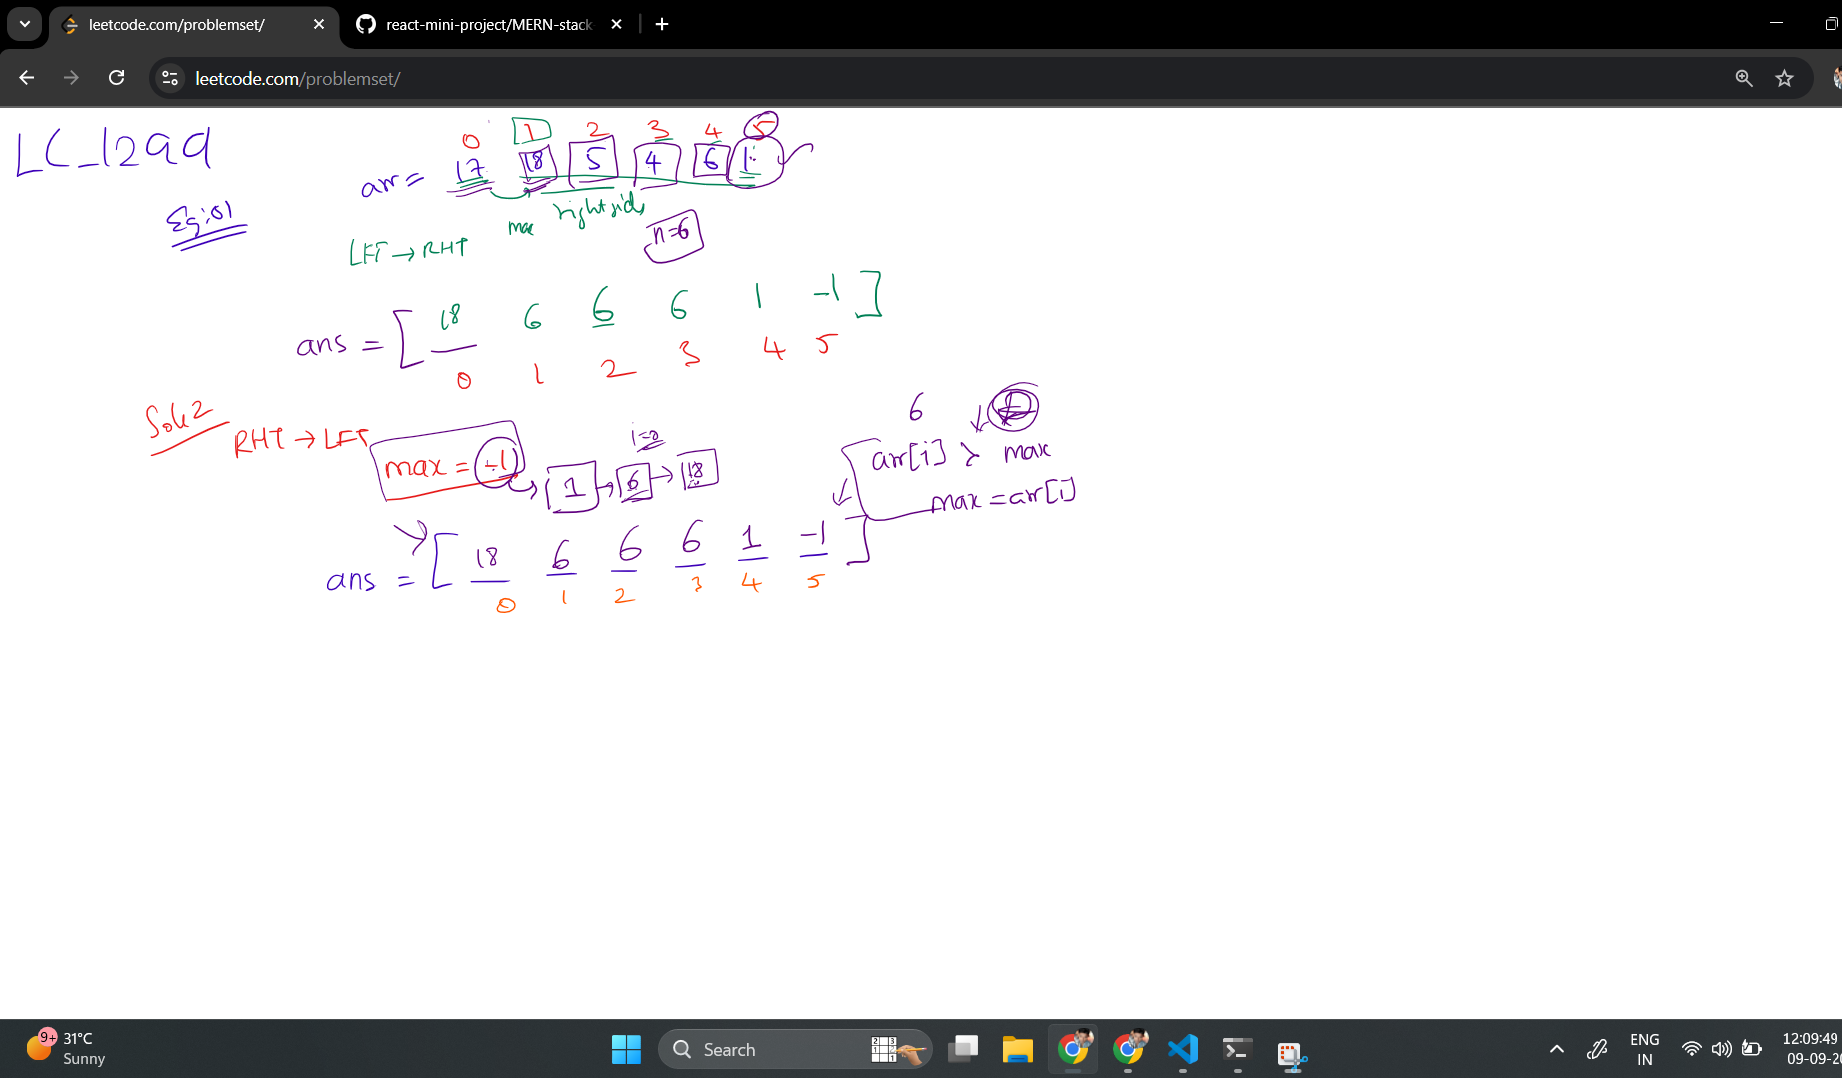 leetcode.com/problemset/
react-mini-project/MERN-stack
leetcode.com/problemset/
LC_1299
0 1 2 3 4 5
arr = 17 18 5 4 6 1
Eg:01
max right side
n=6
LFT → RHT
ans = [ 18 6 6 6 1 -1 ]
0 1 2 3 4 5
Sol:2
RHT → LFT
max = -1 → 1 → 6 → 18
i=0
6
arr[i] > max
max = arr[i]
ans = [ 18 6 6 6 1 -1 ]
0 1 2 3 4 5
9+
31°C
Sunny
Search
ENG
IN
12:09:49
09-09-20